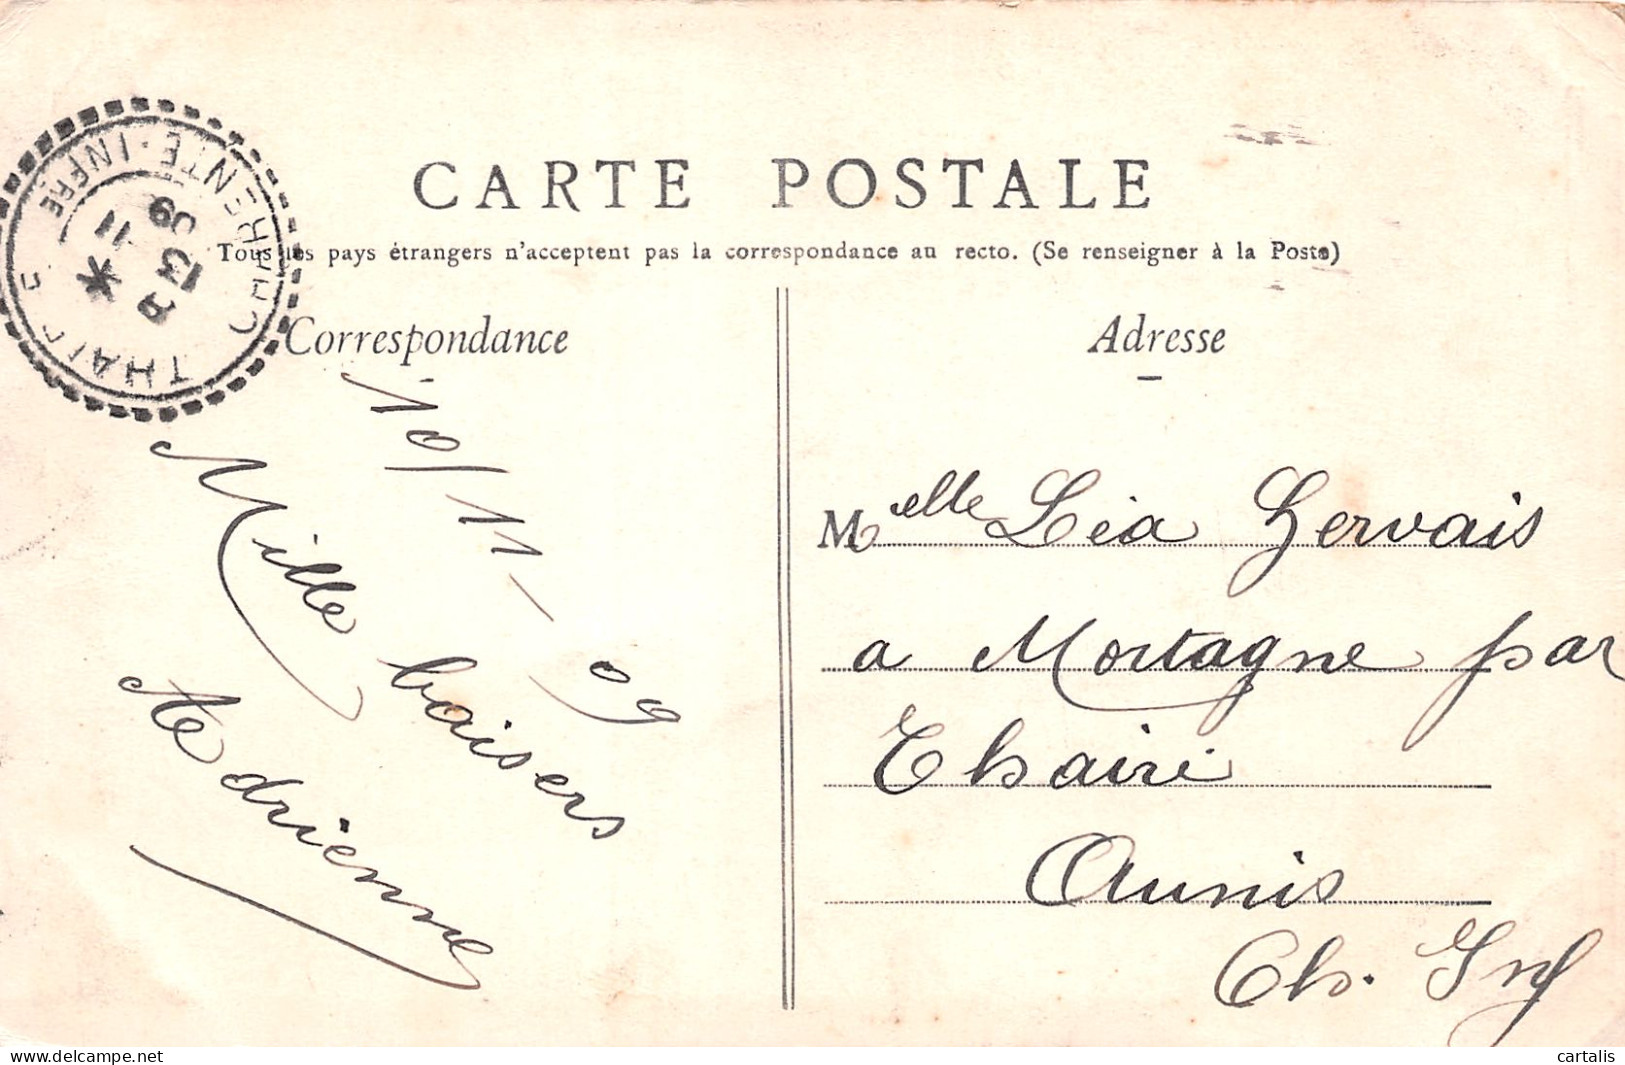 CARTE POSTALE
Tous les pays étrangers n'acceptent pas la correspondance au recto. (Se renseigner à la Poste)
CHARENTE-INFRE
13
11
09
Correspondance
10/11-09
Mille baisers
Adrienne
Adresse
Melle Léa Gervais
a Mortagne par
Thairé
Aunis
Ch. Inf
www.delcampe.net
cartalis